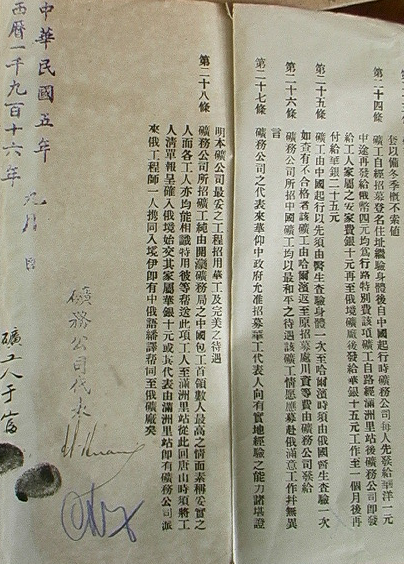 套以備冬季概不索値
第二十四條
礦工自經招募登名住址繼驗身體後自中國起行時礦務公司每人先發給華洋一元
中途再發給俄幣四元均爲行路特別費該項礦工自路經滿洲里站後礦務公司即發
給工人家屬之安家費銀十元再至俄境礦廠後發給華銀十五元工作至一個月後再
付給華銀二十五元
第二十五條
礦工由中國起行以先須由醫生查驗身體一次至哈爾濱時須由俄國醫生查驗一次
如查有不合格者該礦工由哈爾濱返至原招募處川資等費由礦務公司發給
第二十六條
礦務公司所招中國礦工均以最和平之待遇該礦工情愿應募赴俄滿意工作并無異
言
第二十七條
礦務公司之代表來華仰中政府允准招募華工代表人向有實地經驗之能力諸堪證
明本礦公司最妥之工程招用華工及完美之待遇
第二十八條
礦務公司所招礦工純由開灤礦務局之中國包工首領數人最高之情面素稱妥實之
人而各工人亦均能相識特用彼等帮送此項工人至滿洲里站從此回唐山時須將工
人淸單報呈確入俄境始交其家屬華銀十元或其代表由滿洲里站即有礦務公司派
來俄工程師一人携同入境伊即有中俄語繙譯帮同至俄礦廠矣
中華民國五年
西曆一千九百十六年 九月 日
礦務公司代表
礦工人于富